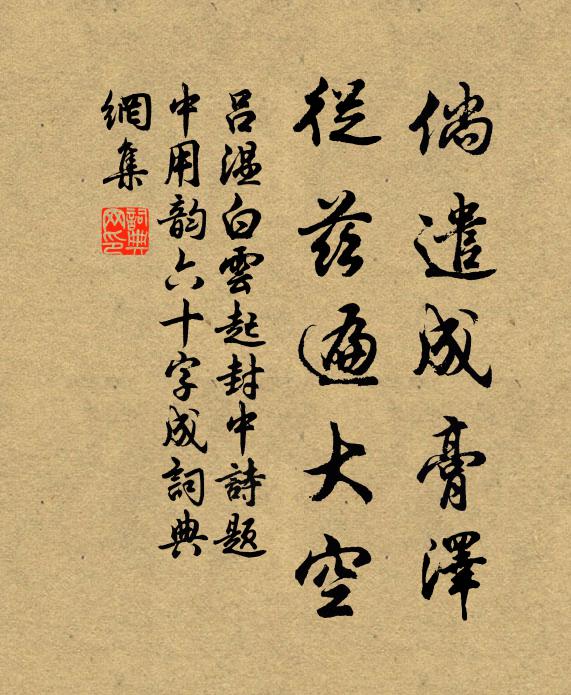 倘遣成膏澤
從茲遍大空
吕温白雲起封中詩題
中用韵六十字成詞典
網集
詞典網印